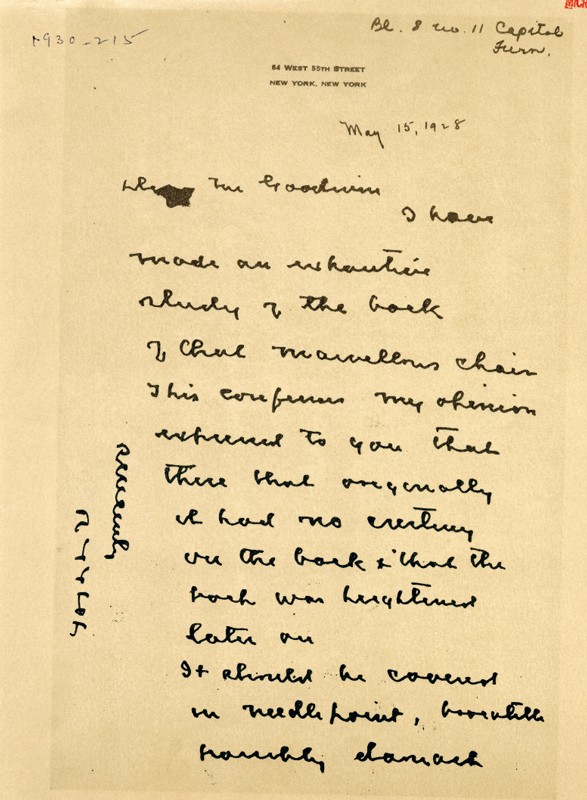 1930-215
Bl. 8 no. 11 Capitol
Furn.
64 WEST 55TH STREET
NEW YORK, NEW YORK
May 15, 1928
Mr Goodwin
I have
made an exhaustive
study of the back
of that marvellous chair
This confirms my opinion
expressed to you that
there that originally
it had no cresting
on the back & that the
back was heightened
later on
It should be covered
in needlepoint,
possibly damask
Sincerely